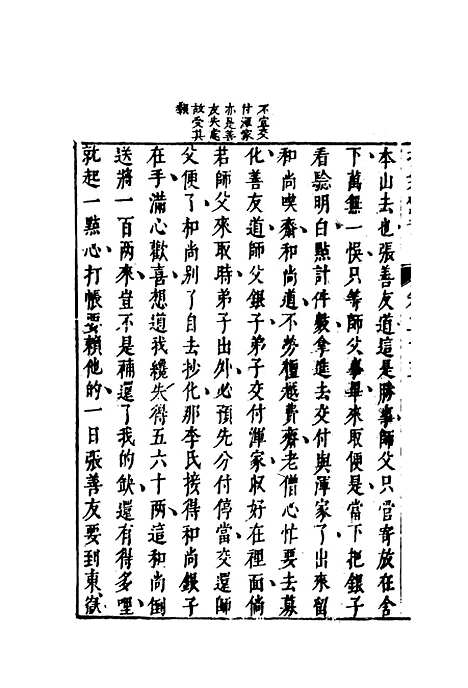 不宜交
付渾家
亦是善
友失處
故受其
賴
本山去也張善友道這是勝事師父只管寄放在舍
下萬無一悞只等師父事畢來取便是當下把銀子
看驗明白點計件數拿進去交付與渾家了出來留
和尚喫齋和尚道不勞檀越費齋老僧心忙要去募
化善友道師父銀子弟子交付渾家收好在裡面倘
若師父來取時弟子出外必預先分付停當交還師
父便了和尚別了自去抄化那李氏接得和尚銀子
在手滿心歡喜想道我纔失得五六十兩這和尚倒
送將一百兩來豈不是補還了我的缺還有得多哩
就起一點心打帳要賴他的一日張善友要到東嶽